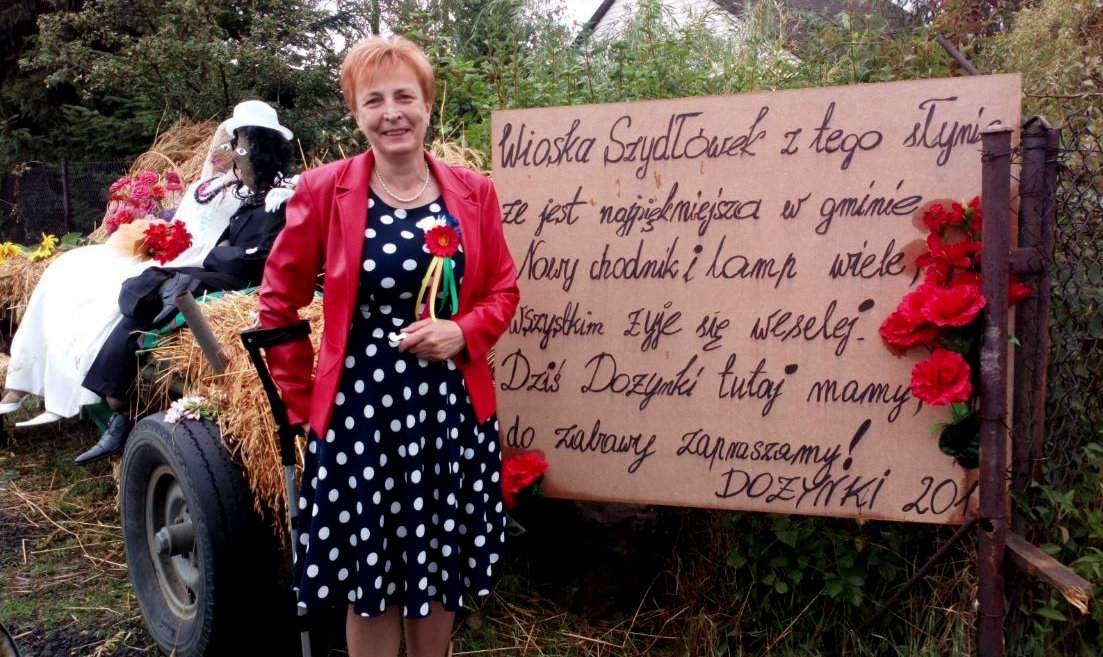 Wioska Szydłówek z tego słynie
że jest najpiękniejsza w gminie,
Nowy chodnik i lamp wiele,
wszystkim żyje się weselej.
Dziś Dożynki tutaj mamy,
do zabawy zapraszamy!
DOŻYNKI 201